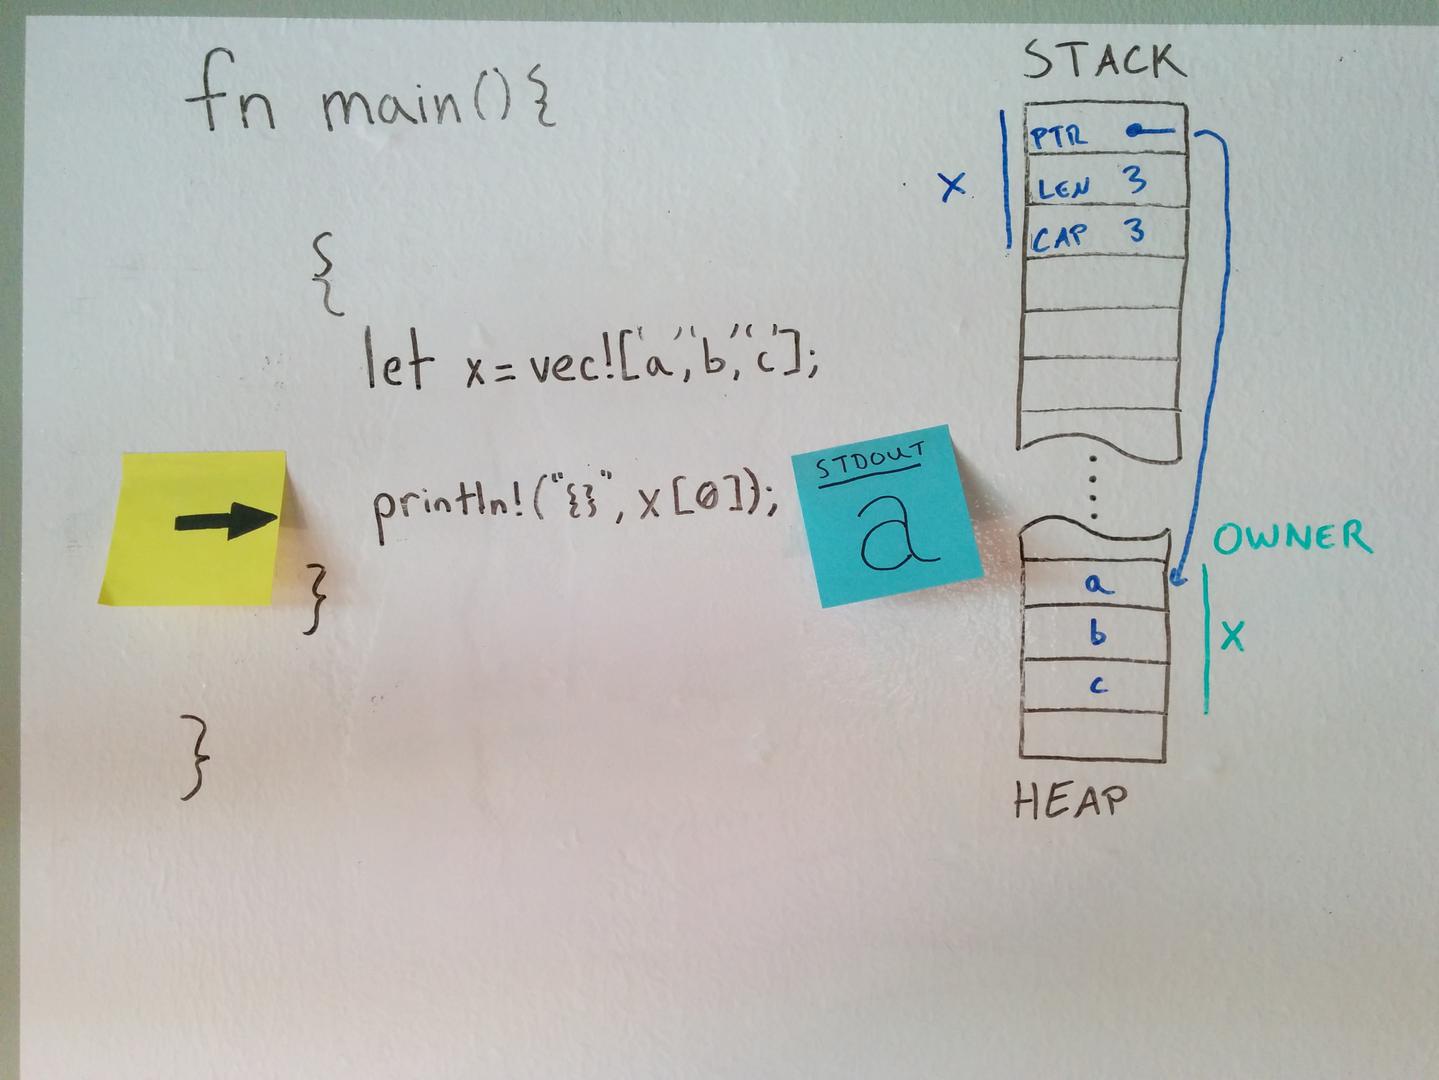 fn main(){
{
let x = vec!['a','b','c'];
println!("{}", x[0]);
}
}
STDOUT
a
STACK
x
PTR
LEN 3
CAP 3
OWNER
a
b
c
x
HEAP